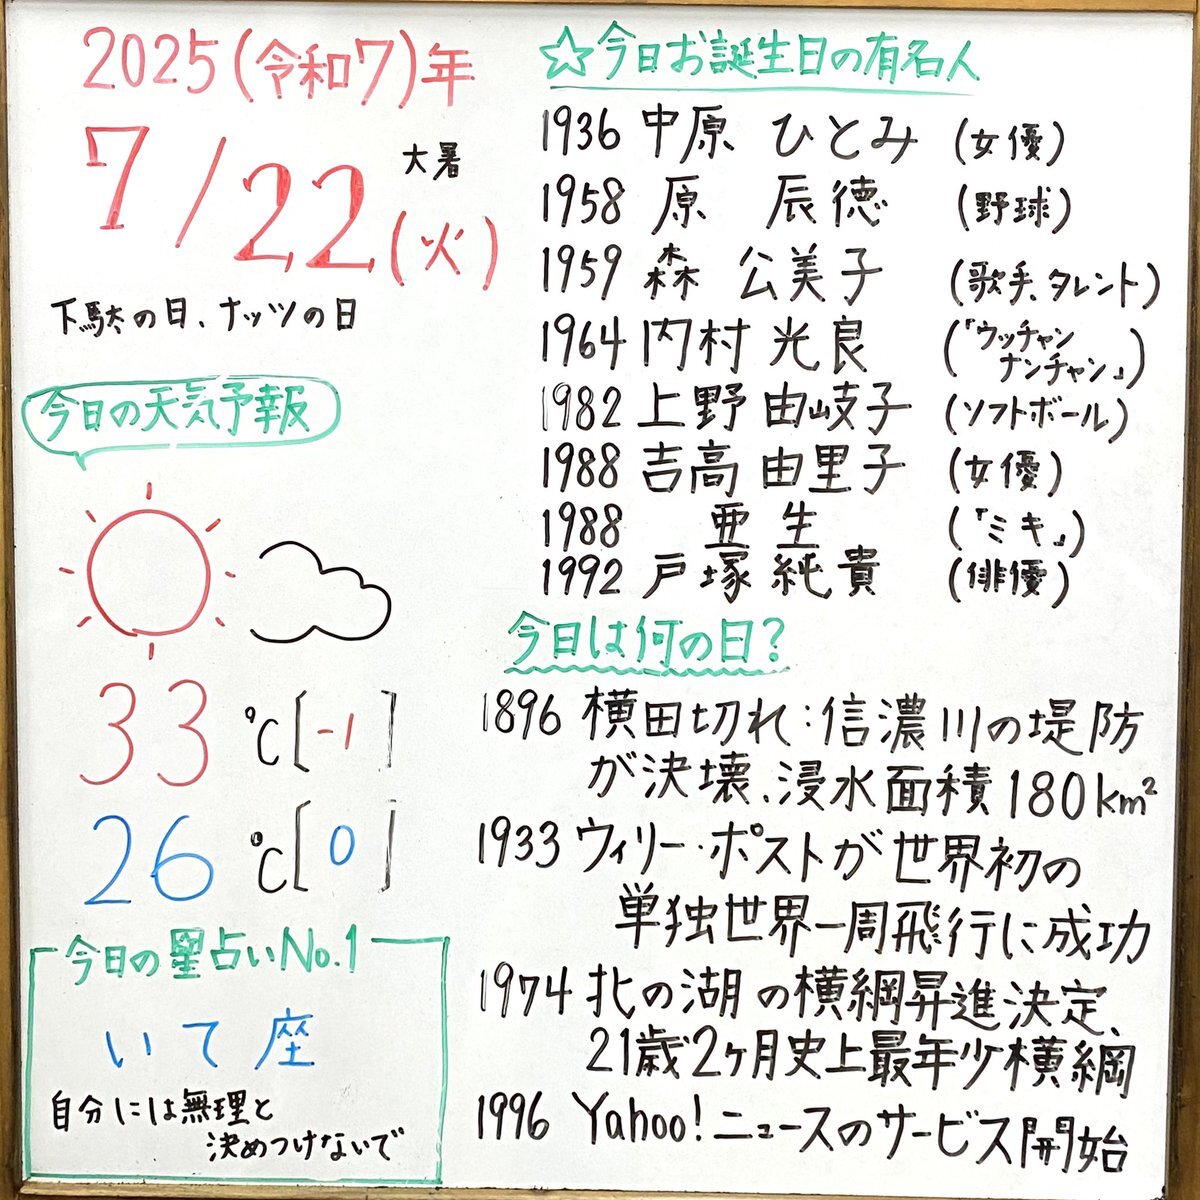 2025(令和7)年
7/22(火)
大暑
下駄の日、ナッツの日
今日の天気予報
33℃[-1]
26℃[0]
今日の星占いNo.1
いて座
自分には無理と
決めつけないで
☆今日お誕生日の有名人
1936 中原 ひとみ (女優)
1958 原 辰徳 (野球)
1959 森 公美子 (歌手、タレント)
1964 内村 光良 (『ウッチャン
ナンチャン』)
1982 上野 由岐子 (ソフトボール)
1988 吉高 由里子 (女優)
1988 亜生 (『ミキ』)
1992 戸塚 純貴 (俳優)
今日は何の日?
1896 横田切れ:信濃川の堤防
が決壊、浸水面積180km²
1933 ウィリー・ポストが世界初の
単独世界一周飛行に成功
1974 北の湖の横綱昇進決定、
21歳2ヶ月史上最年少横綱
1996 Yahoo!ニュースのサービス開始